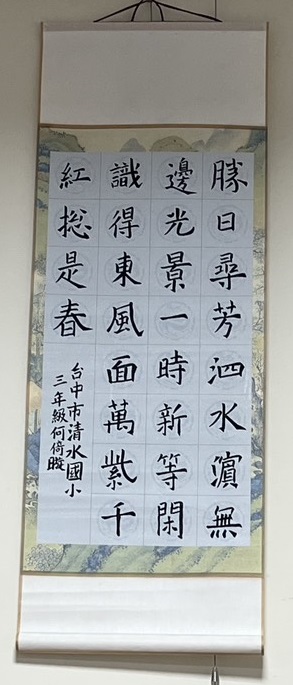 勝日尋芳泗水濵無
邊光景一時新等閑
識得東風面萬紫千
紅総是春
台中市清水國小
三年級何倚暶